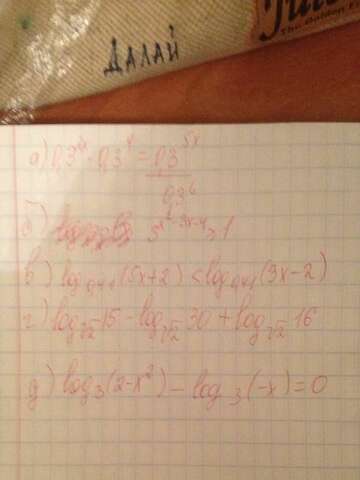 ДАЛАЙ
The Golden
а) 0,3ˣ · 0,3⁴ = 0,3⁵ˣ
0,3⁶
б) 3^(x²-3x-4) ≥ 1
в) log₀,₄₁(5x+2) < log₀,₄₁(3x-2)
г) log₂√2 15 - log₂√2 30 + log₂√2 16
д) log₃(2-x²) - log₃(-x) = 0